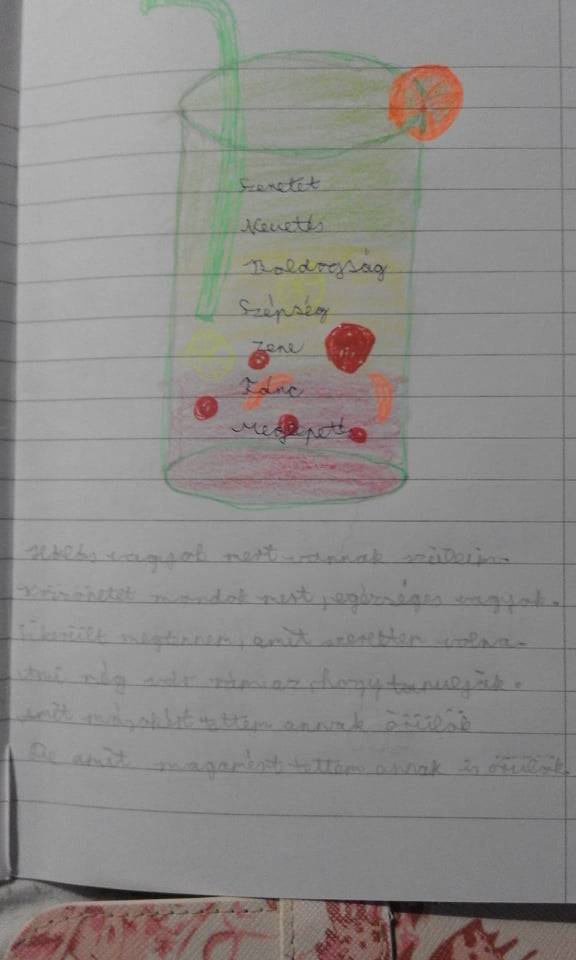 Szeretet
Nevetés
Boldogság
Szépség
Zene
Tánc
Meglepetés
Hálás vagyok mert vannak szüleim.
Köszönetet mondok mert, egészséges vagyok.
Sikerült megtennem, amit szerettem volna.
Ami még vár rám az, hogy tanuljak.
Amit másokért tettem annak örülök
De amit magamért tettem annak is örülök.